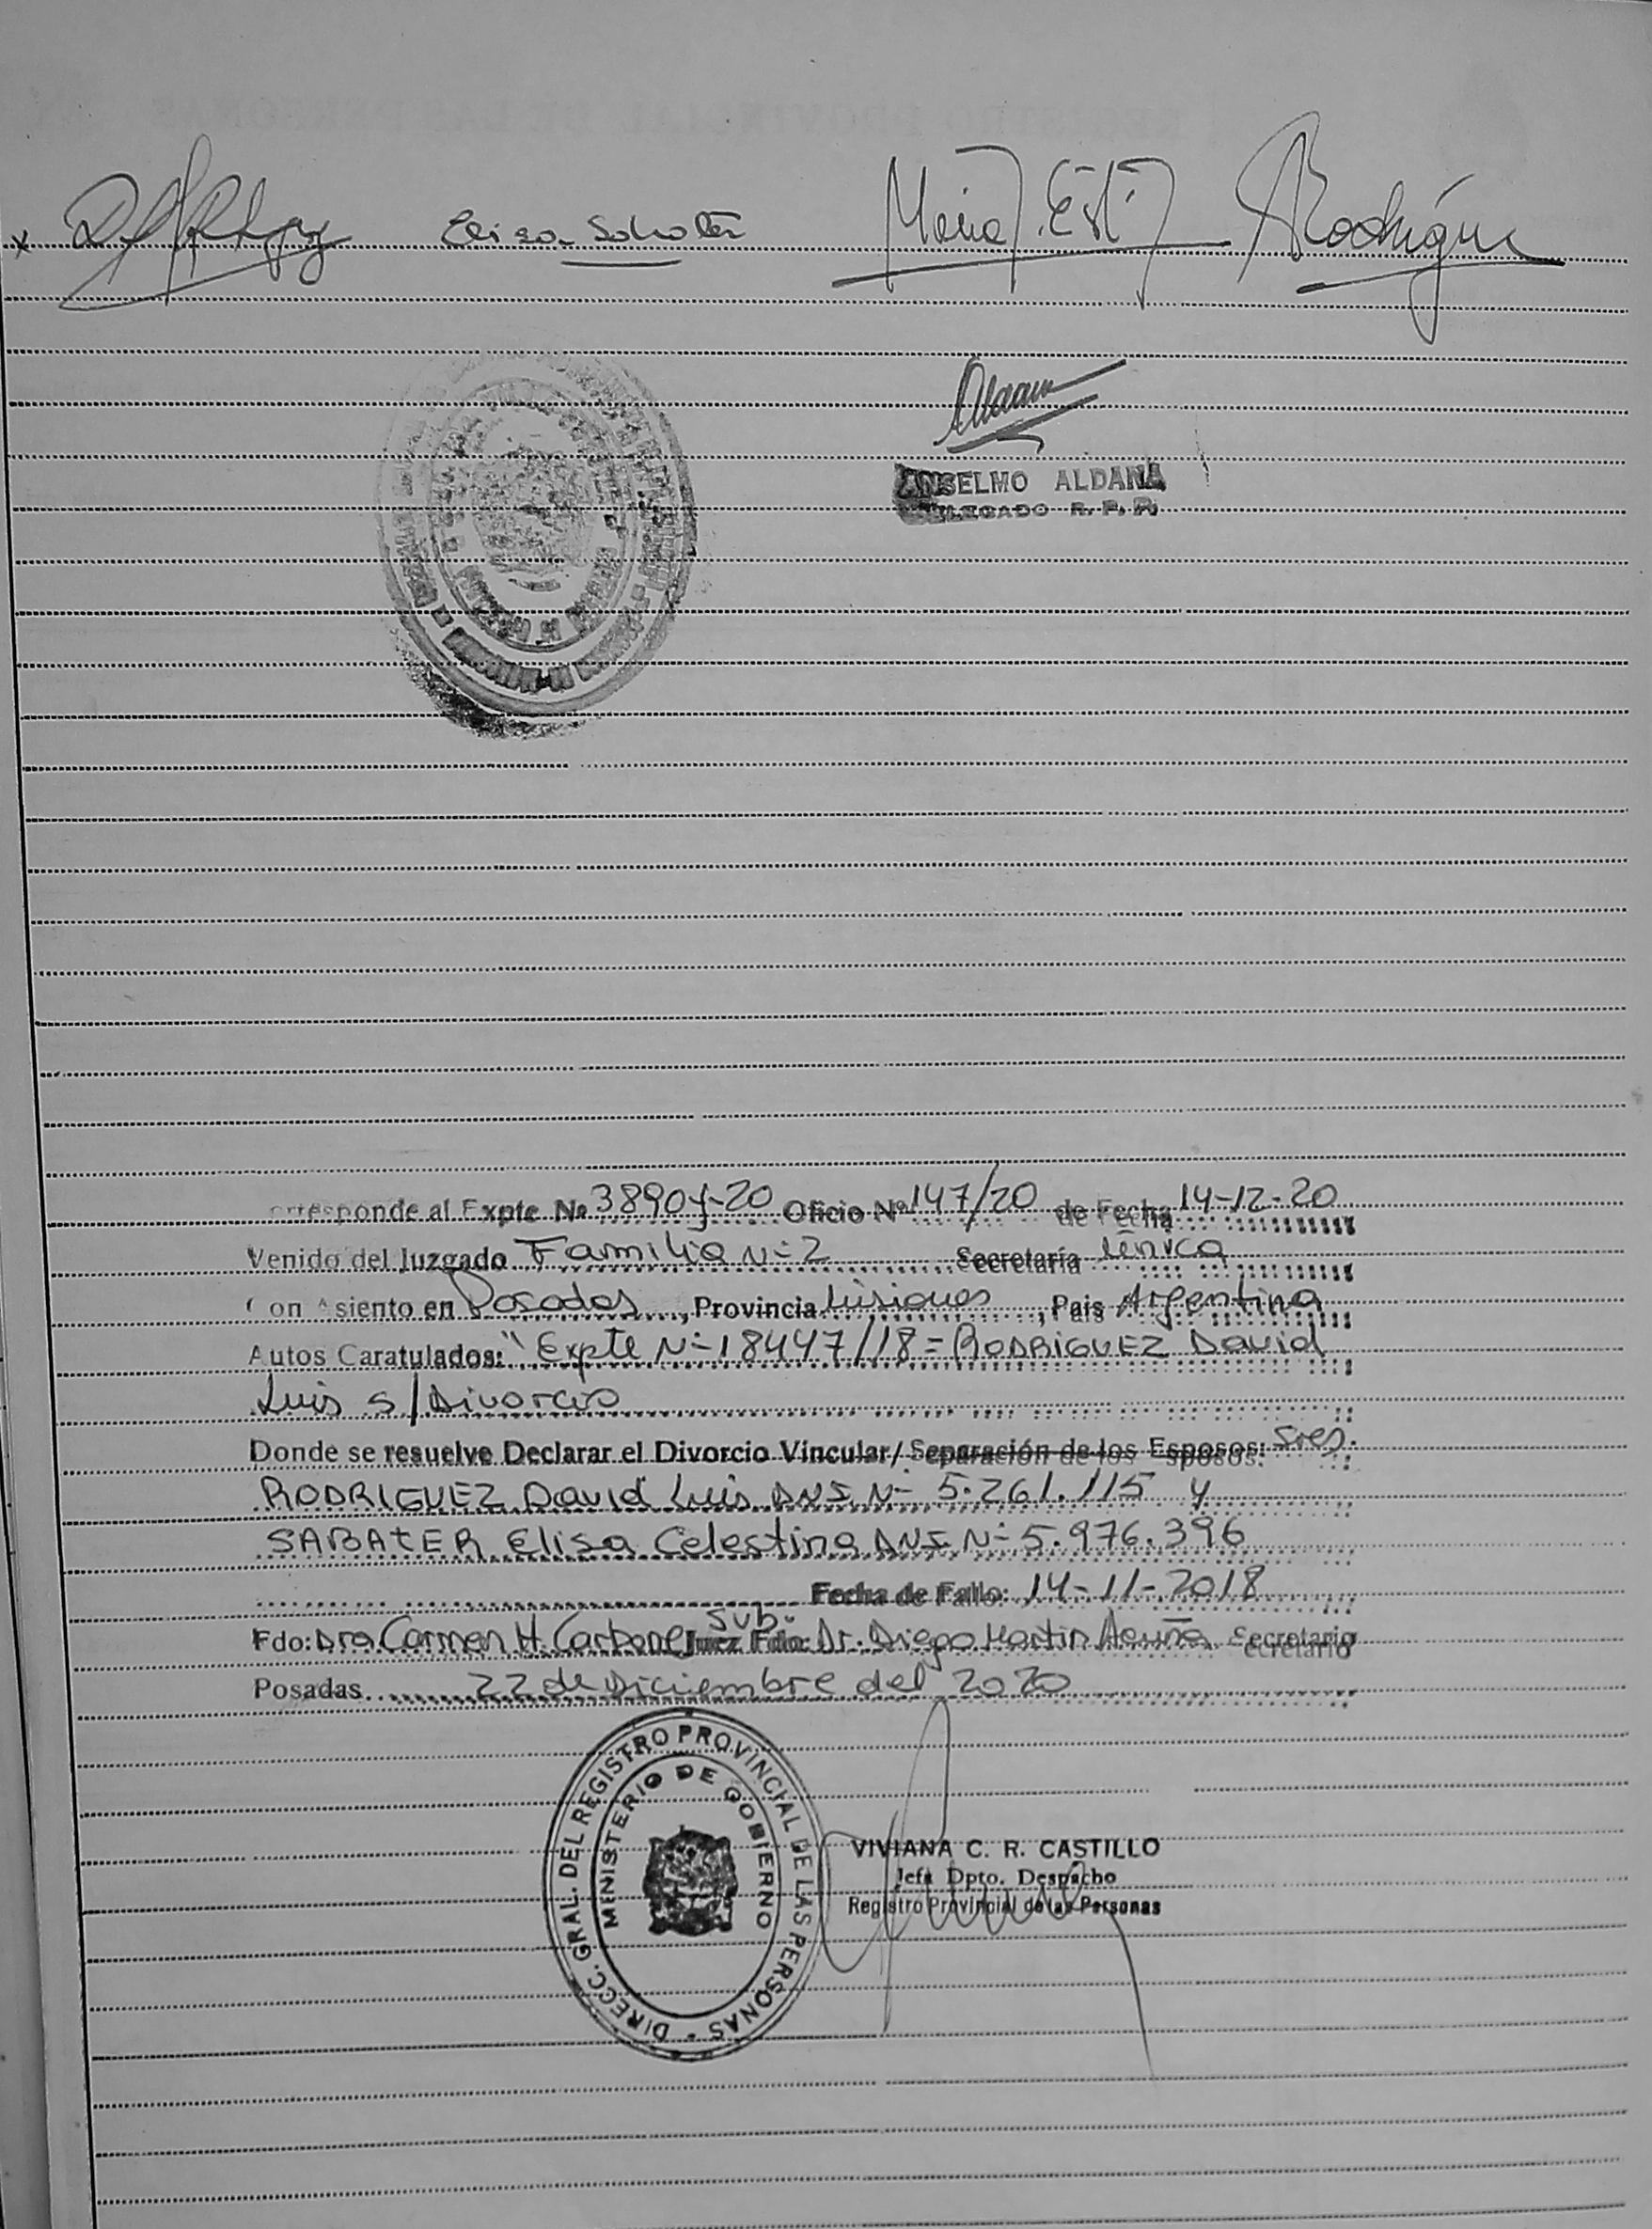 x Elisa Sabater María Est. Rodríguez
Aldana
ANSELMO ALDANA
DELEGADO R. P. P.
Corresponde al Expte Nº 3890 -20 Oficio Nº 147/20 de Fecha 14-12-20
Venido del Juzgado Familia Nº 2 Secretaría Única
Con Asiento en Posadas, Provincia Misiones, Pais Argentina
Autos Caratulados: "Expte Nº 18447/18 = RODRIGUEZ David
Luis s/Divorcio
Donde se resuelve Declarar el Divorcio Vincular/ Separación de los Esposos: Sres.
RODRIGUEZ David Luis DNI Nº 5.261.115 y
SABATER Elisa Celestina DNI Nº 5.976.396
Fecha de Fallo: 14-11-2018
Fdo: Dra. Carmen H. Carbone Juez Sub. Fdo: Dr. Diego Martin Acuña Secretario
Posadas 22 de Diciembre del 2020
DIRECC. GRAL. DEL REGISTRO PROVINCIAL DE LAS PERSONAS -
MINISTERIO DE GOBIERNO
VIVIANA C. R. CASTILLO
Jefa Dpto. Despacho
Registro Provincial de las Personas